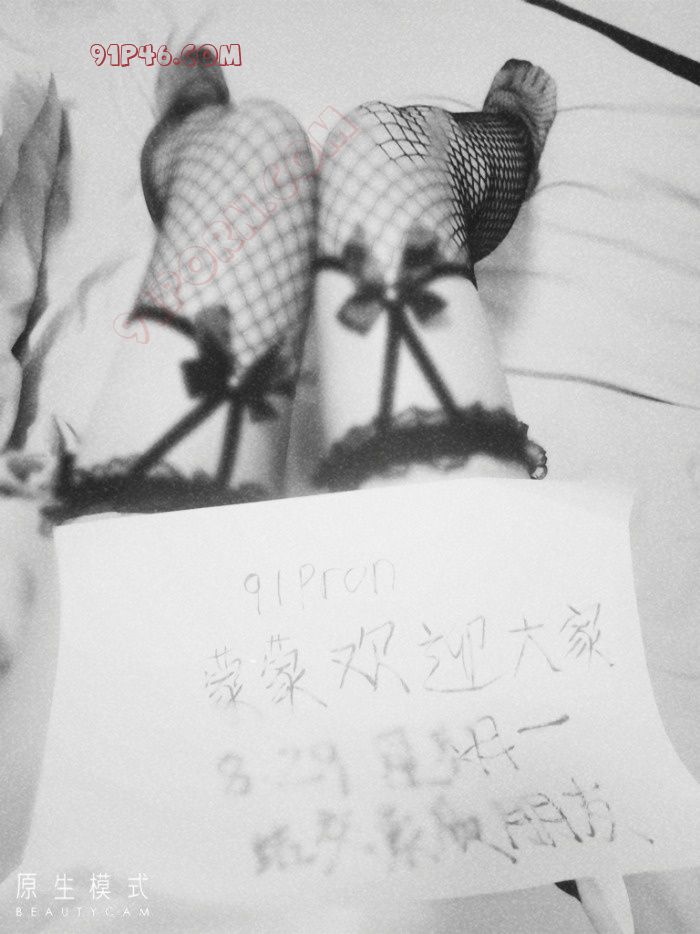 91P46.COM
91PORN.COM
91Pron
蒙蒙欢迎大家
8.29 星期一
原生模式
BEAUTYCAM